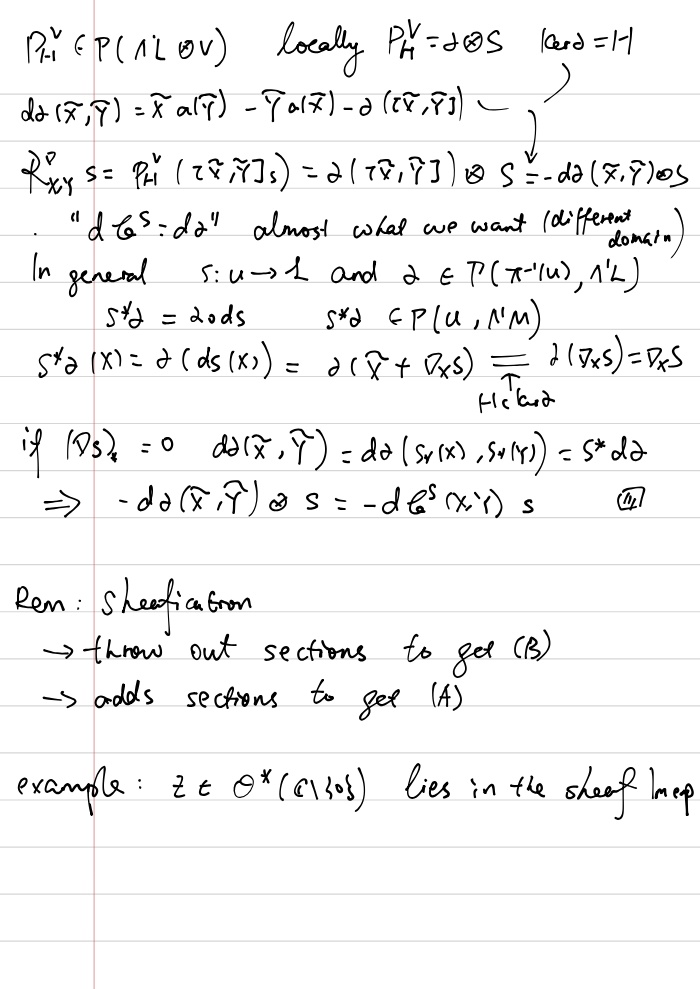 P_H^V ∈ Γ(Λ¹L ⊗ V) locally P_H^V = ∂⊗S ker∂ = H
d∂(X̃,Ỹ) = X̃ ∂(Ỹ) - Ỹ ∂(X̃) - ∂([X̃,Ỹ])
R^∇_XY s = P_H^V ([X̃,Ỹ]_s) = ∂([X̃,Ỹ]) ⊗ S = -d∂(X̃,Ỹ)⊗S
. "d b^S = d∂" almost what we want (different domain)
In general s: u → L and ∂ ∈ Γ(π⁻¹(u), Λ¹L)
S*∂ = ∂∘ds S*∂ ∈ Γ(u, Λ¹M)
S*∂(X) = ∂(ds(X)) = ∂(X̃ + ∇_X S) = ∂(∇_X S) = ∇_X S
↑
H ⊂ ker∂
if (∇s)ₓ = 0 d∂(X̃,Ỹ) = d∂(S_*(X), S_*(Y)) = S* d∂
⇒ -d∂(X̃,Ỹ) ⊗ S = -d b^S (X,Y) s
Rem: Sheafication
→ throw out sections to get (B)
→ adds sections to get (A)
example: z ∈ O*(C\{0}) lies in the sheaf Im exp